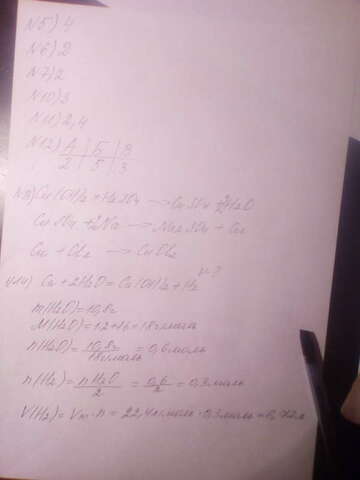 N5) 4
N6) 2
N7) 2
N10) 3
N11) 2,4
N12) А | Б | В
2 | 5 | 3
Cu(OH)2 + H2SO4 → CuSO4 + 2H2O
CuSO4 + 2Na → Na2SO4 + Cu
Cu + Cl2 → CuCl2
V-?
N14) Ca + 2H2O = Ca(OH)2 + H2
m(H2O) = 10,8г
M(H2O) = 1·2+16 = 18г/моль
n(H2O) = 10,8г / 18г/моль = 0,6моль
n(H2) = n H2O / 2 = 0,6 / 2 = 0,3моль
V(H2) = Vm · n = 22,4л/моль · 0,3моль =